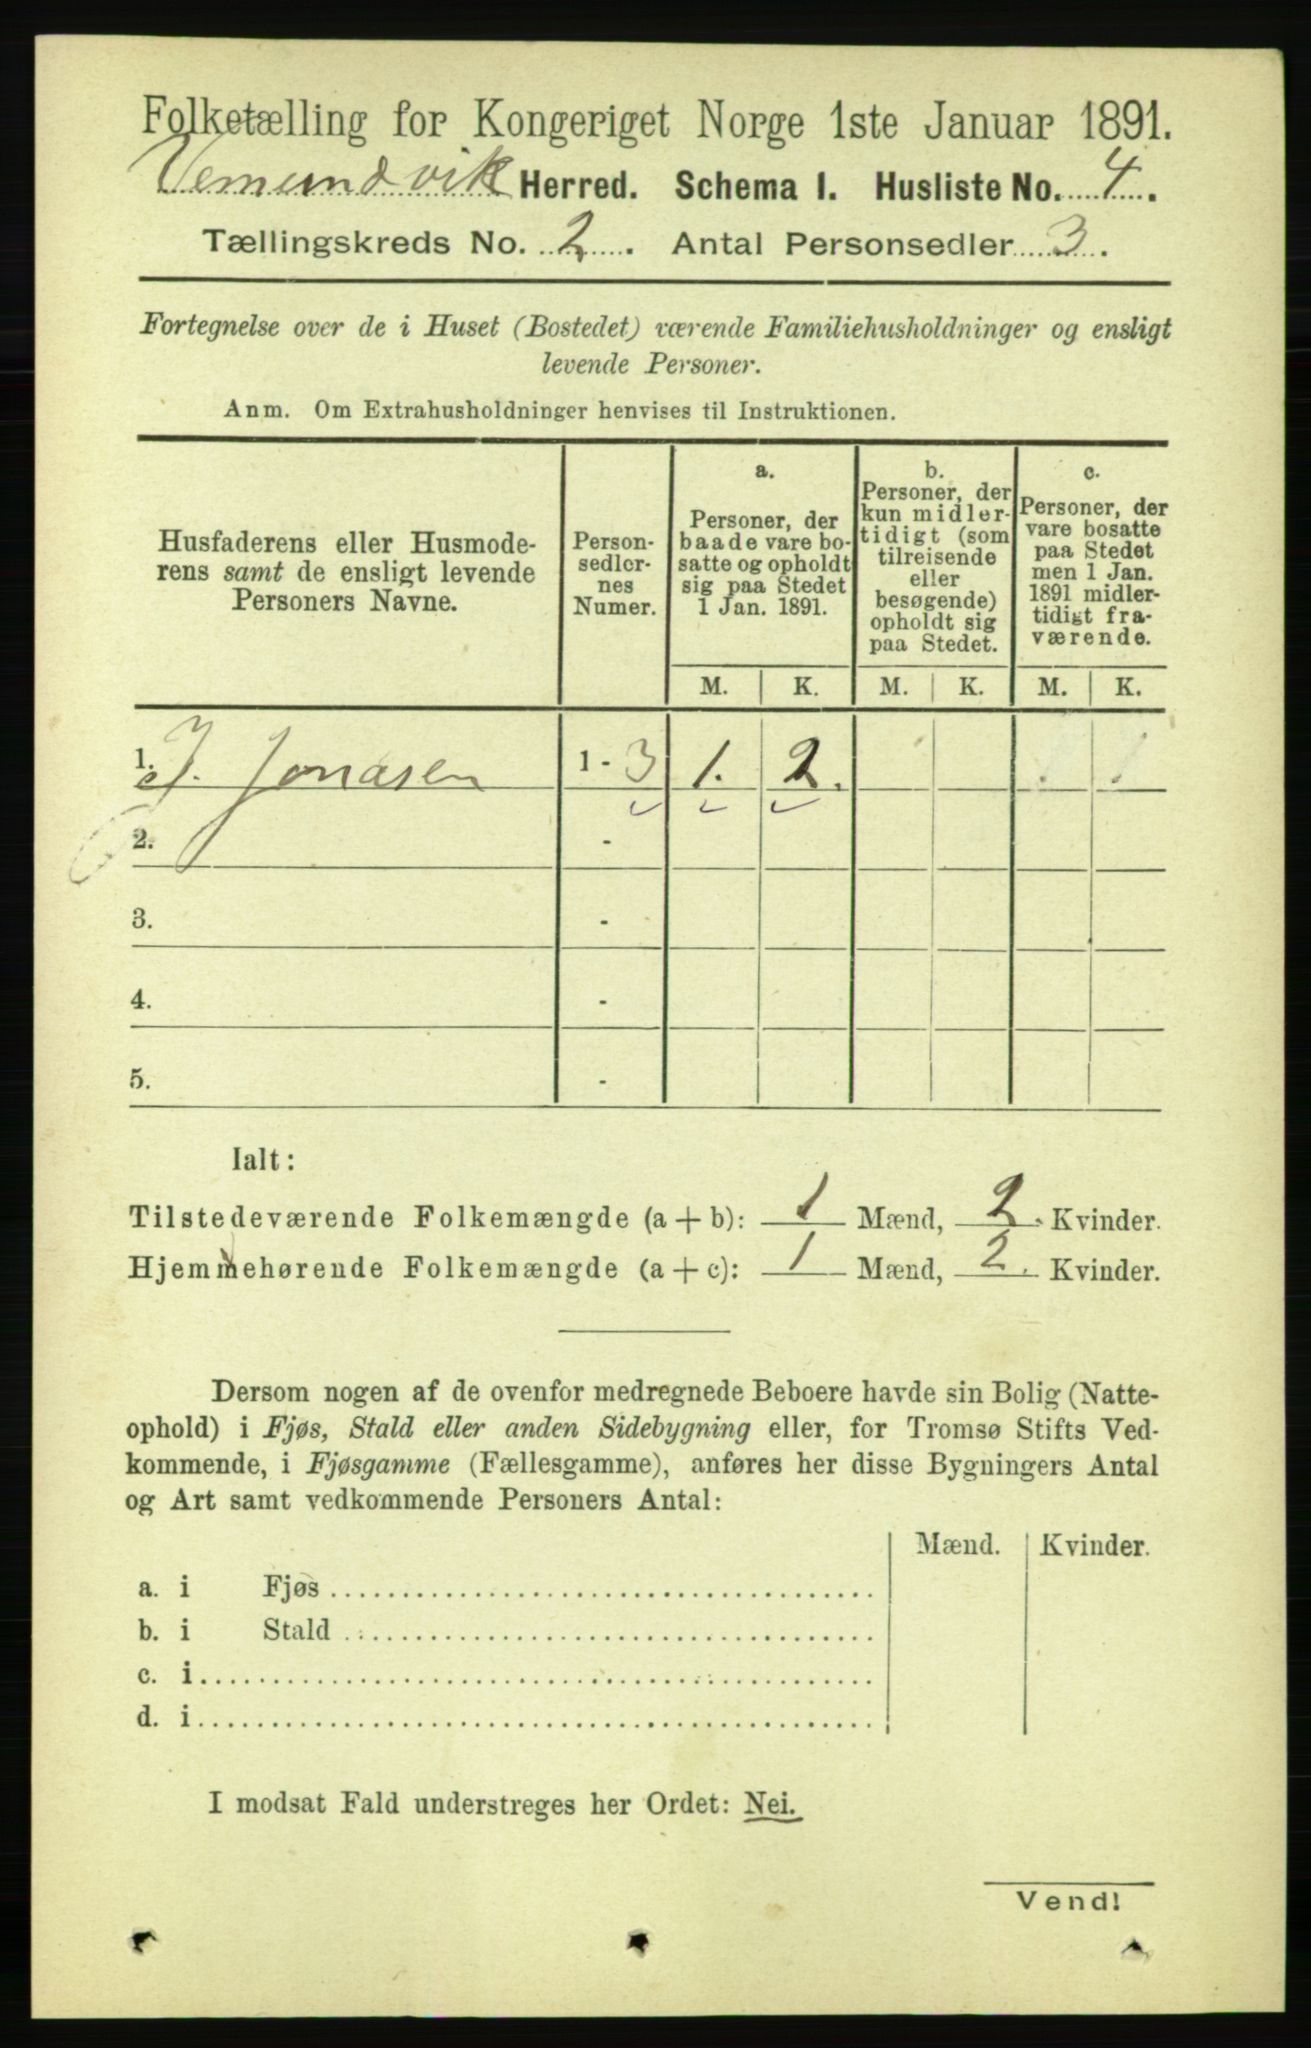 Folketælling for Kongeriget Norge 1ste Januar 1891.
Vemundvik Herred. Schema I. Husliste No. 4.
Tællingskreds No. 2. Antal Personsedler 3.
Fortegnelse over de i Huset (Bostedet) værende Familiehusholdninger og ensligt
levende Personer.
Anm. Om Extrahusholdninger henvises til Instruktionen.
Husfaderens eller Husmode-
rens samt de ensligt levende
Personers Navne.
Person-
sedler-
nes
Numer.
a.
Personer, der
baade vare bo-
satte og opholdt
sig paa Stedet
1 Jan. 1891.
b.
Personer, der
kun midler-
tidigt (som
tilreisende
eller
besøgende)
opholdt sig
paa Stedet.
c.
Personer, der
vare bosatte
paa Stedet
men 1 Jan.
1891 midler-
tidigt fra-
værende.
M. K. M. K. M. K.
1. J. Jonasen 1 - 3 1. 2.
2. -
3. -
4. -
5. -
Ialt:
Tilstedeværende Folkemængde (a + b): 1 Mænd, 2. Kvinder.
Hjemmehørende Folkemængde (a + c): 1 Mænd, 2. Kvinder.
Dersom nogen af de ovenfor medregnede Beboere havde sin Bolig (Natte-
ophold) i Fjøs, Stald eller anden Sidebygning eller, for Tromsø Stifts Ved-
kommende, i Fjøsgamme (Fællesgamme), anføres her disse Bygningers Antal
og Art samt vedkommende Personers Antal:
Mænd. Kvinder.
a. i Fjøs
b. i Stald
c. i
d. i
I modsat Fald understreges her Ordet: Nei.
Vend!